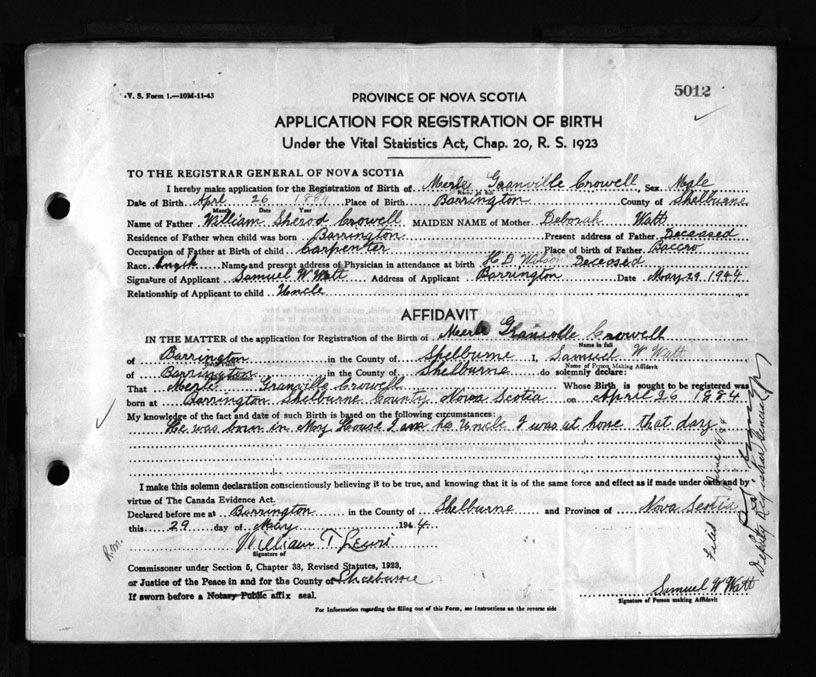 V. S. Form 1.—10M-11-43
5012
PROVINCE OF NOVA SCOTIA
APPLICATION FOR REGISTRATION OF BIRTH
Under the Vital Statistics Act, Chap. 20, R. S. 1923
TO THE REGISTRAR GENERAL OF NOVA SCOTIA
I hereby make application for the Registration of Birth of Merle Granville Crowell, Sex Male
Name in full
Date of Birth April 26 1884 Place of Birth Barrington County of Shelburne
Month Date Year
Name of Father William Sherod Crowell MAIDEN NAME of Mother Deborah Watt
Residence of Father when child was born Barrington Present address of Father Deceased
Occupation of Father at Birth of child Carpenter Place of Birth of Father Baccro
Race Name and present address of Physician in attendance at birth H D Wilson Deceased
Signature of Applicant Samuel W Watt Address of Applicant Barrington Date May 29 1944
Relationship of Applicant to child Uncle
AFFIDAVIT
IN THE MATTER of the application for Registration of the Birth of Merle Granville Crowell
Name in full
of Barrington in the County of Shelburne I, Samuel W Watt
Name of Person Making Affidavit
of Barrington in the County of Shelburne do solemnly declare:
That Merle Granville Crowell Whose Birth, is sought to be registered was
born at Barrington Shelburne County Nova Scotia on April 26 1884
My knowledge of the fact and date of such Birth is based on the following circumstances:
He was born in My House I am his Uncle I was at hone that day
I make this solemn declaration conscientiously believing it to be true, and knowing that it is of the same force and effect as if made under oath and by
virtue of The Canada Evidence Act.
Declared before me at Barrington in the County of Shelburne and Province of Nova Scotia
this 29 day of May 1944
William T. Lewis
Signature of
Commissioner under Section 5, Chapter 38, Revised Statutes, 1923,
or Justice of the Peace in and for the County of Shelburne
If sworn before a Notary Public affix seal.
Samuel W Watt
Signature of Person making Affidavit
For Information regarding the filling out of this Form, see Instructions on the reverse side
R.M.
Filed June
Deputy Registrar General